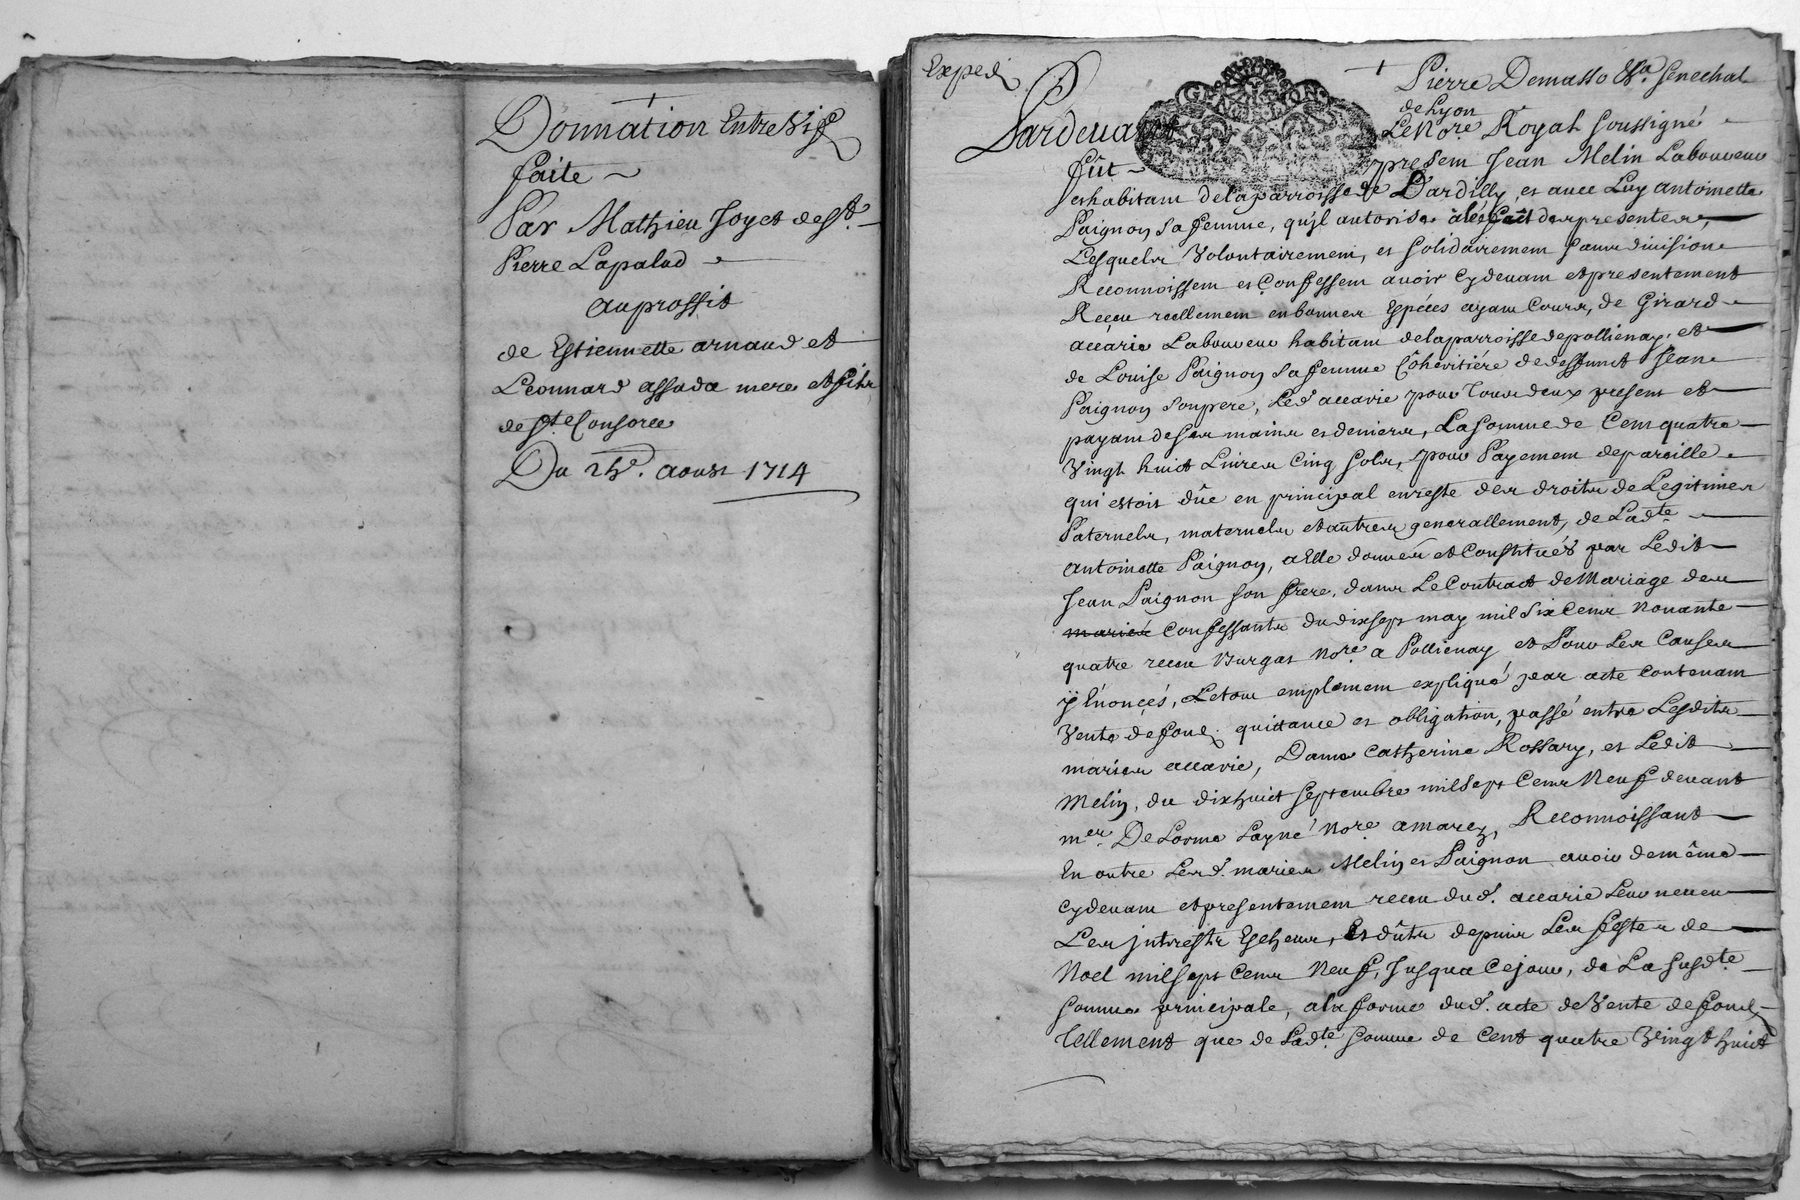 Donnation Entre Vifs
faite
Par Mathieu Joyet de St.
Pierre Lapalud
au proffit
de Estiennette arnaud et
Léonnard assada mere et fils
de Ste Consorce
Du 25e. aoust 1714
Expedié
Pardevant
Pierre Demasso Esr. senechal
de Lyon
GENERATION
Le Nore Royal soussigné
fût present Jean Melin Laboureur
et habitant de la parroisse de Dardilly et avec Luy antoinette
Paignon sa femme, qu'jl autorise à l'effait des presentes,
Lesquels Volontairement, et solidairement sans division
Reconnoissent et Confessent avoir cydevant et presentement
Reçeu reellement en bonnes Espéces ayant Cours, de Girard
accarie Laboureur habitant de la parroisse de pollienay, et
de Louise Paignon sa femme Cohéritiére de deffunct Jean
Paignon son pere, Led. accarie pour tous deux present et
payant de ses mains et deniers, La somme de Cent quatre
Vingt huict Livres Cinq sols, pour Payement de pareille
qui estoit dûe en principal en reste des droits de Legitimes
Paternels, maternels et autres generallement, de Ladte
antoinette Paignon, a Elle donnés et Constitués par Ledit
Jean Paignon son frere, dans Le Contract de Mariage des
mariés Confessants du dixsept may mil six Cents Nonante
quatre receu Burgat Nore a Pollienay et Pour Les Causes
ÿ Enoncés, Le tout emplement expliqué par acte Contenant
Vente de fond, quittance et obligation, passé entre Lesdits
mariés accarie, Dame Catherine Rossary, et Ledit
Melin, du dixhuict septembre mil sept Cents Neuf devant
mer. De Lorme Layné Nore a marcy, Reconnoissant
En outre Lesd. mariés Melin et Paignon avoir de même
cydevant et presentement receu dud. accarie Leur neveu
Les jntrests Escheus, et dûts depuis Les festes de
Noel mil sept Cents Neuf, Jusqua Ce jour, de La susdte
somme principale, a la forme dud. acte de Vente de fond,
tellement que de Ladte somme de Cent quatre Vingt huict